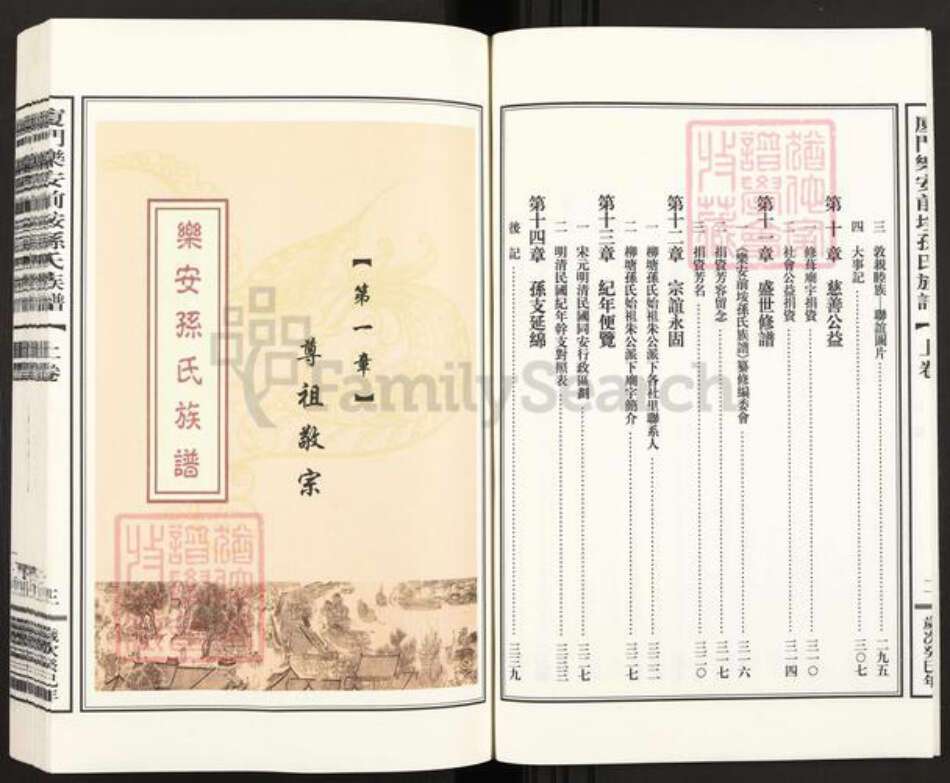 三 敦親睦族—聯誼圖片 二九五
四 大事記 三〇七
第十章 慈善公益
一 修葺廟宇捐資 三一〇
二 社會公益捐資 三一四
第十一章 盛世修譜
一 《樂安前垵孫氏族譜》纂修編委會 三一六
二 捐資芳容留念 三一七
三 捐資芳名 三二〇
第十二章 宗誼永固
一 柳塘孫氏始祖朱公派下各社里聯系人
二 柳塘孫氏始祖朱公派下廟宇簡介 三二七
第十三章 紀年便覽
一 宋元明清民國同安行政區劃 三二七
二 明清民國紀年幹支對照表 三三三
第十四章 孫支延綿
後記 三三九
廈門樂安前垵孫氏族譜【上卷
歲次癸巳年
FamilySearch
【第一章】
尊祖敬宗
樂安孫氏族譜
廈門樂安前垵孫氏族譜【上卷
歲次癸巳年